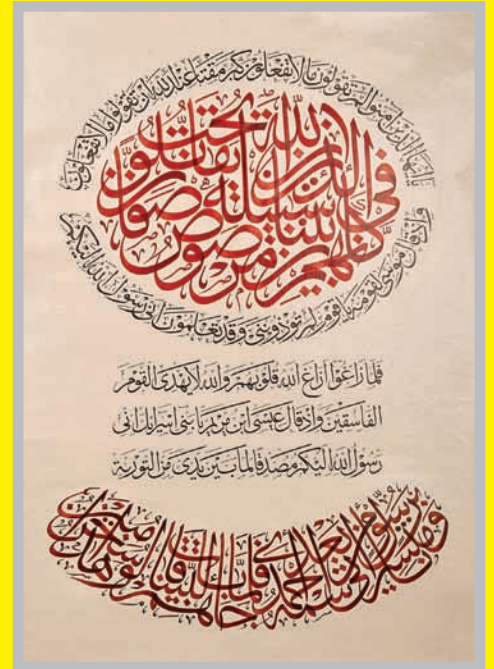 يا ايها الذين امنوا لم تقولون ما لا تفعلون كبر مقتا عند الله ان تقولوا ما لا تفعلون
ان الله يحب الذين يقاتلون في سبيله صفا كانهم بنيان مرصوص
واذ قال موسى لقومه يا قوم لم تؤذونني وقد تعلمون اني رسول الله اليكم
فلما زاغوا ازاغ الله قلوبهم والله لا يهدى القوم
الفاسقين واذ قال عيسى ابن مريم يا بنى اسرائيل انى
رسول الله اليكم مصدقا لما بين يدى من التورية
ومبشرا برسول ياتي من بعدي اسمه احمد فلما جاءهم بالبينات قالوا هذا سحر مبين